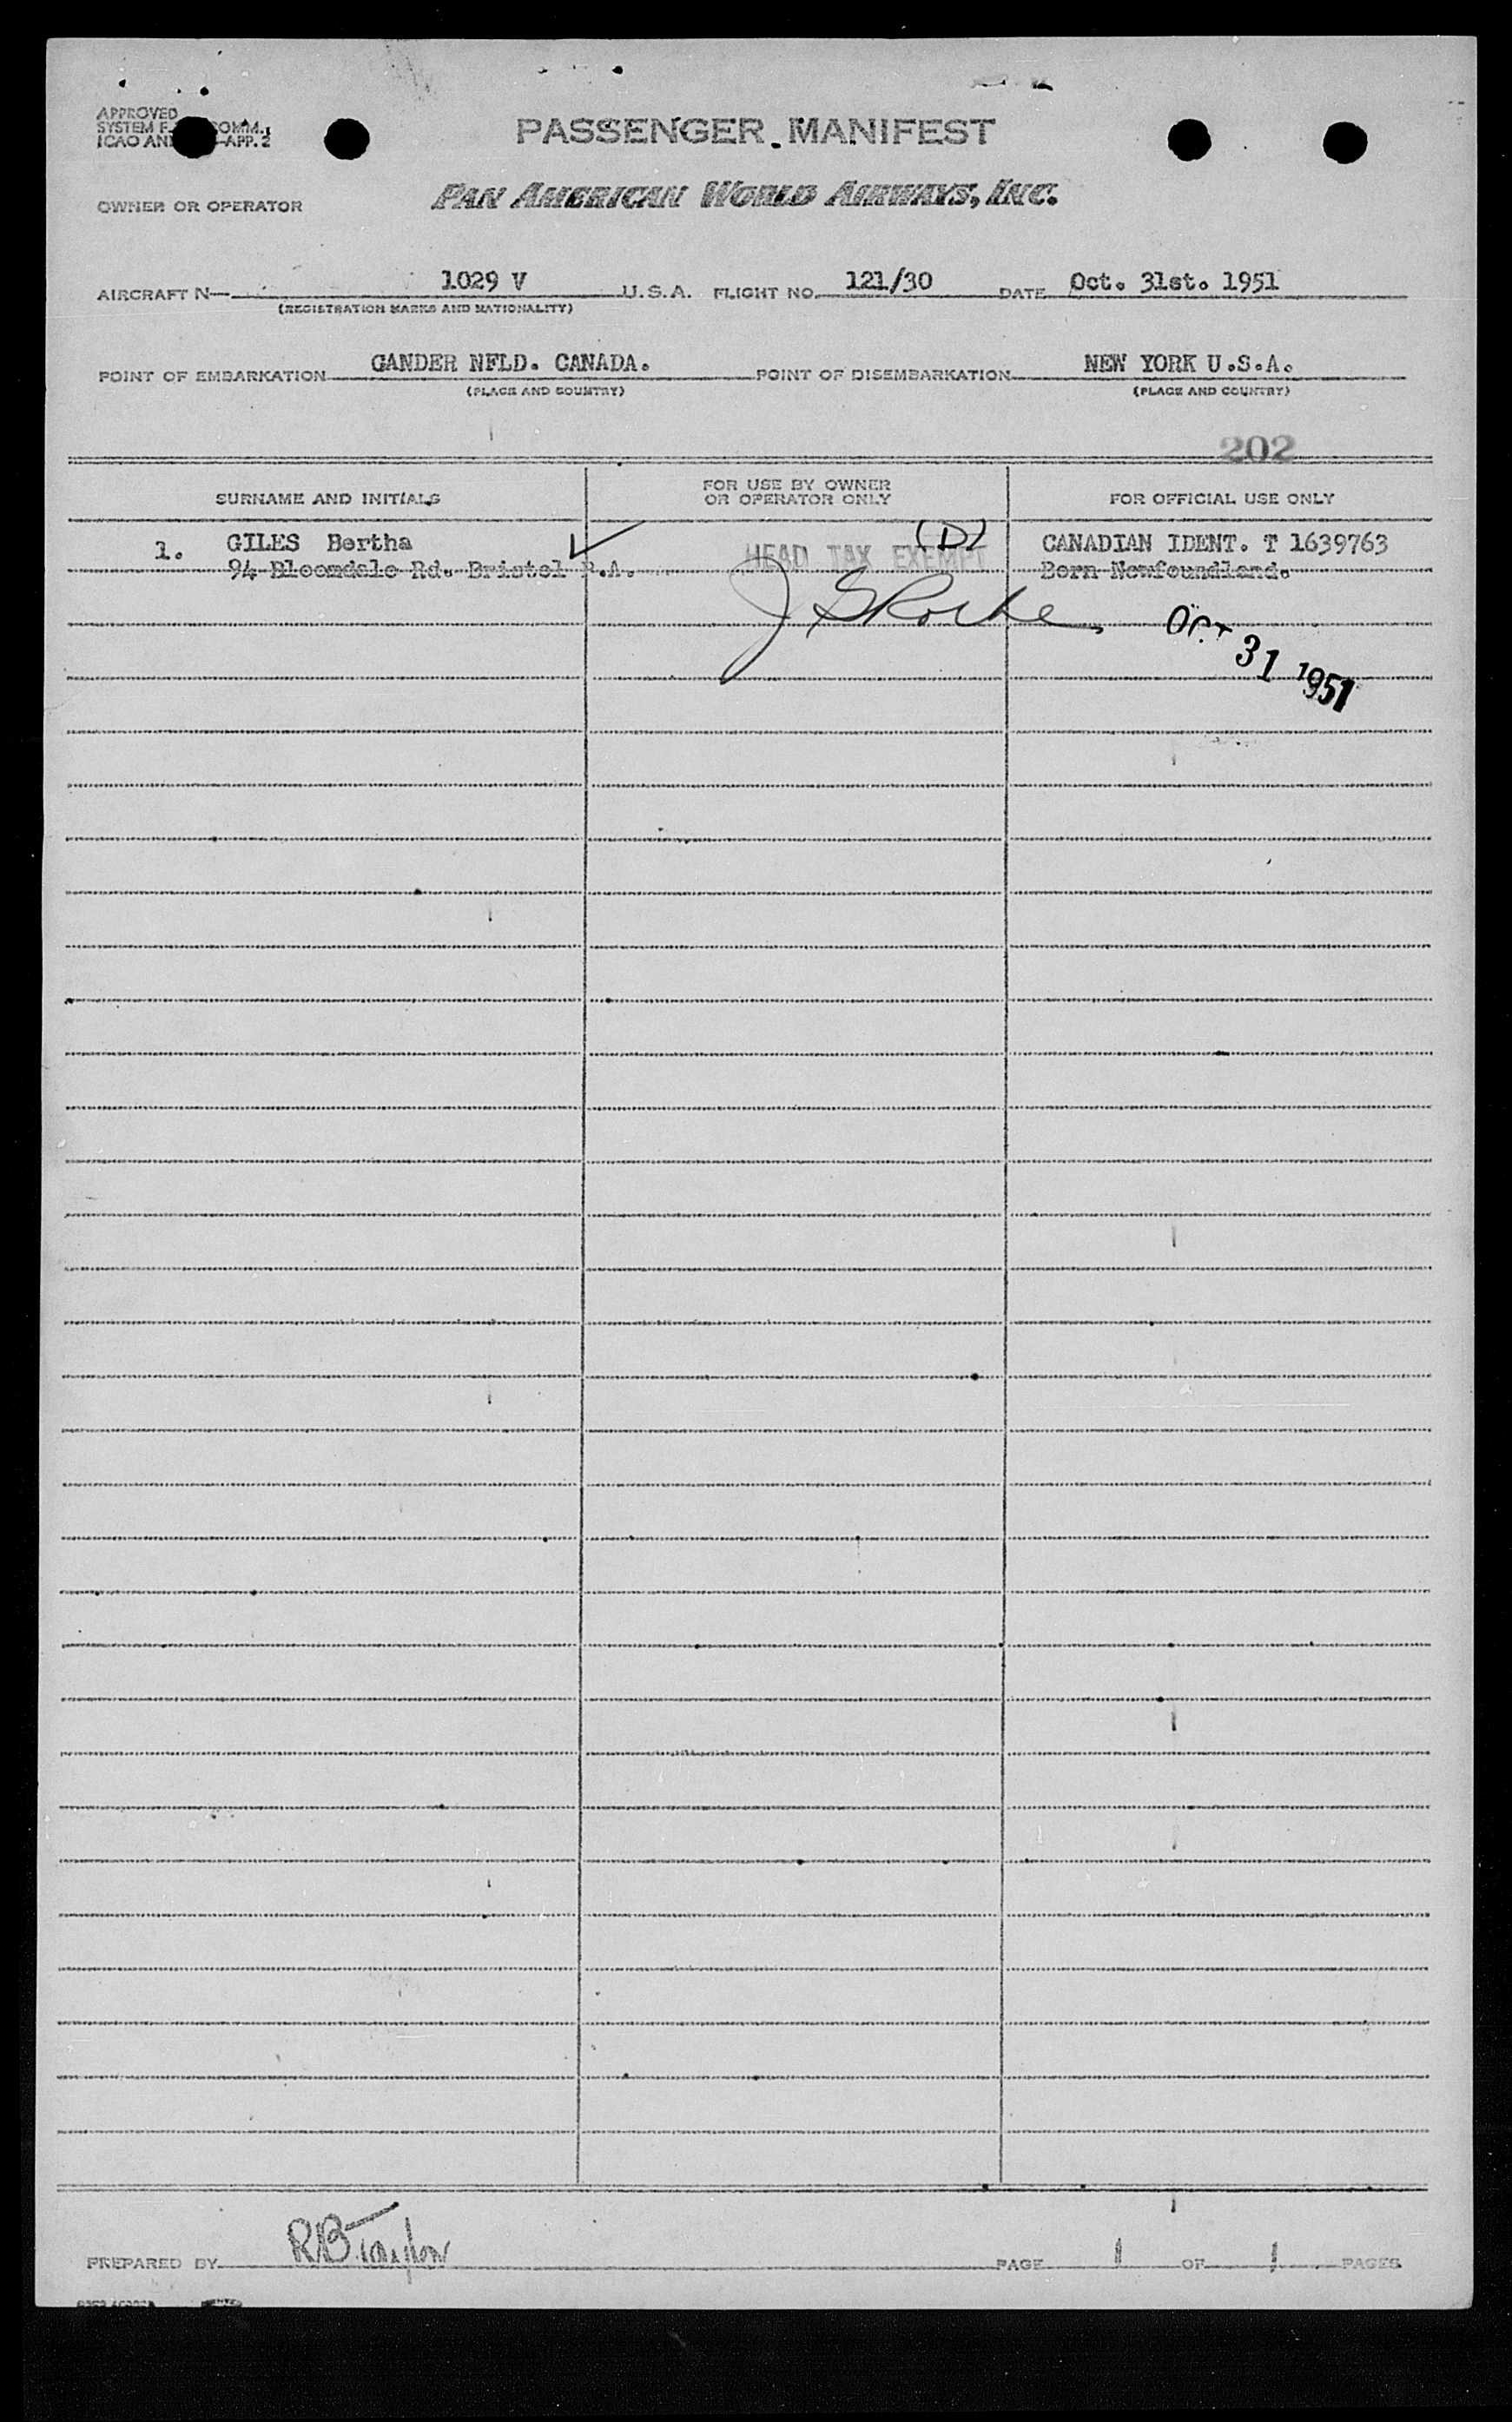 APPROVED
SYSTEM COMM.,
ICAO APP. 2
PASSENGER MANIFEST
OWNER OR OPERATOR PAN AMERICAN WORLD AIRWAYS, INC.
AIRCRAFT N— 1029 V U.S.A. FLIGHT NO. 121/30 DATE Oct. 31st. 1951
(REGISTRATION MARKS AND NATIONALITY)
POINT OF EMBARKATION GANDER NFLD. CANADA. POINT OF DISEMBARKATION NEW YORK U.S.A.
(PLACE AND COUNTRY) (PLACE AND COUNTRY)
202
SURNAME AND INITIALS FOR USE BY OWNER OR OPERATOR ONLY FOR OFFICIAL USE ONLY
1. GILES Bertha HEAD TAX EXEMPT (D) CANADIAN IDENT. T 1639763
94 Bloomdale Rd. Bristol P.A. Born Newfoundland.
OCT 31 1951
PREPARED BY RB Taylor PAGE 1 OF 1 PAGES